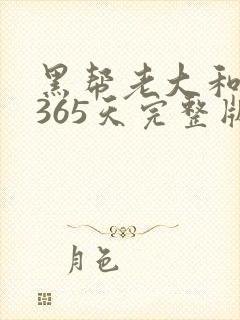 黑帮老大和
365天完整版
月色